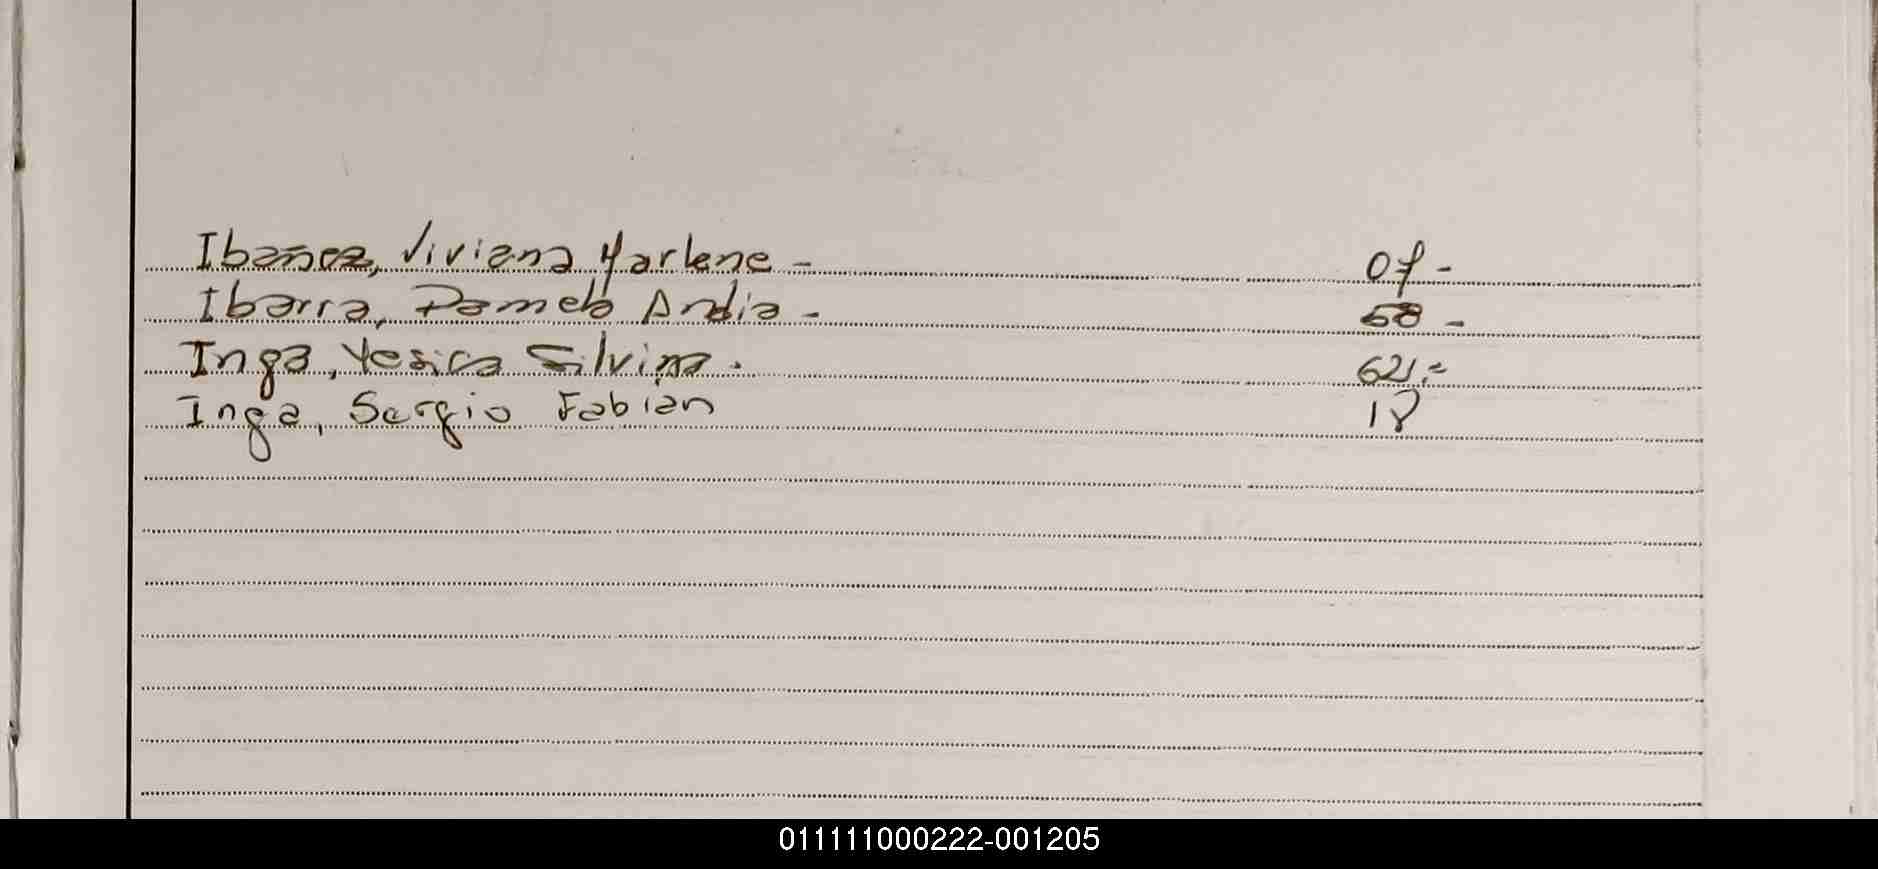 Ibañez, Viviana Marlene - 07 -
Ibarra, Pamela Andia - 58 -
Inga, Yesica Silvina. 62.-
Inga, Sergio Fabian 18
011111000222-001205